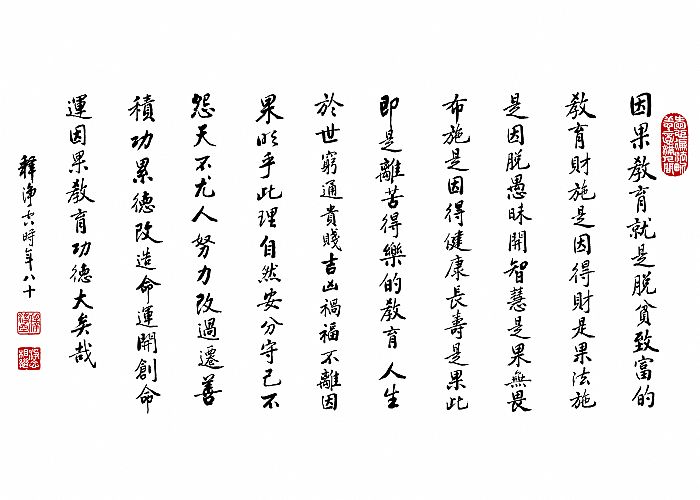 因果教育就是脱貧致富的
教育財施是因得財是果法施
是因脱愚昧開智慧是果無畏
布施是因得健康長壽是果此
即是離苦得樂的教育人生
於世窮通貴賤吉凶禍福不離因
果明乎此理自然安分守己不
怨天不尤人努力改過遷善
積功累德改造命運開創命
運因果教育功德大矣哉
釋淨空時年八十